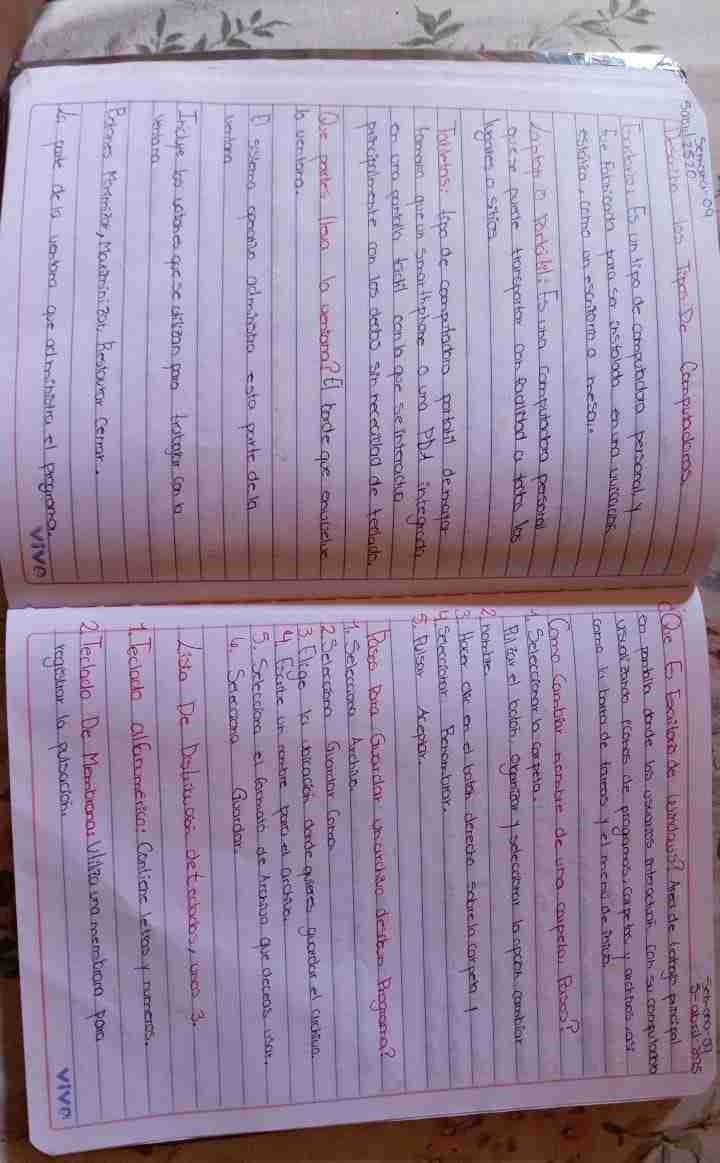 Semana-09
5abril 2520
Describa los Tipos De Computadoras
Escritorio: Es un tipo de computadora personal y
fue Fabricada para ser instalada en una ubicación
estática, como un escritorio o mesa..
Laptop o Portatil: Es una computadora personal
que se puede transportar con facilidad a todos los
lugares o sitios
Tabletas: tipo de computadora portatil de mayor
tamaño que un smarthphone o una PDA integrada
en una pantalla táctil con la que se interactua
principalmente con los dedos sin necesidad de teclado.
Que partes lleva la ventana? El borde que envuelve
la ventana.
El sistema operativo administra esta parte de la
ventana
Incluye los botones que se utilizan para trabajar con la
ventana
Botones Minimizar, Maximinizar, Restaurar Cerrar.
La parte de la ventana que administra el programa.
VIVE
Semana-09
5-abril 2025
¿Que Es Escritorio de Windows? Area de trabajo principal
en pantalla donde los usuarios interactúan con su computadora
visualizando iconos de programas, carpetas y archivos, asi
como la barra de tareas y el menú de inicio
Como Cambiar nombre de una carpeta Pasos?
1. Seleccionar la carpeta..
Pulsar el botón, organizar y seleccionar la opción, cambiar
2 nombre
3 Hacer clic en el botón derecho sobre la carpeta y
4 Seleccionar Renombrar.
5. Pulsar Aceptar.
Pasos Para Guardar un archivo desde un Programa?
1. Selecciona Archivo.
2 Selecciona Guardar Como
3 Elige la ubicación donde quieres guardar el archivo.
4. Escribe un nombre para el archivo.
5. Selecciona el formato de Archivo que deceas usar.
6. Selecciona Guardar.
Lista De Dispositivos de teclados, unos 3.
1. Teclado alfanumérico: Contiene letras y números.
2 Teclado De Membrana: Utiliza una membrana para
registrar la pulsación.
VIVE